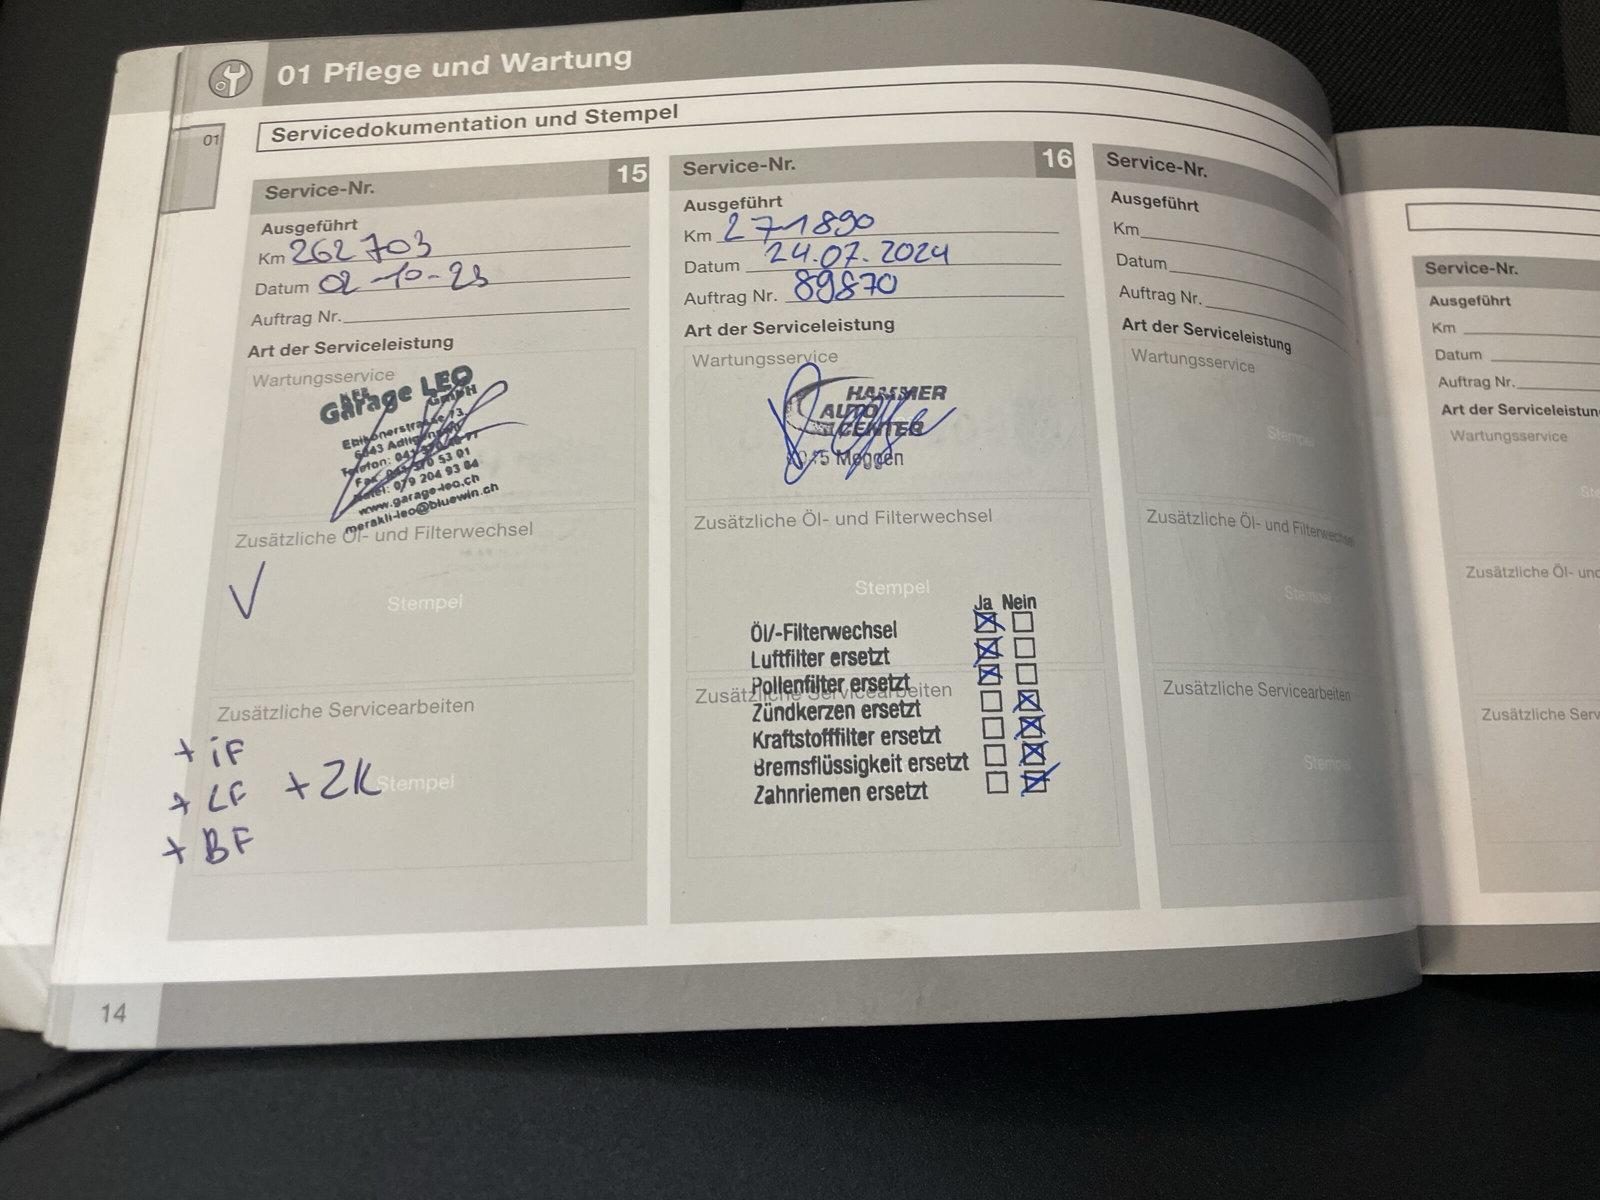 01 Pflege und Wartung
01
Servicedokumentation und Stempel
Service-Nr. 15
Ausgeführt
Km 262 703
Datum 02-10-23
Auftrag Nr.
Art der Serviceleistung
Wartungsservice
Garage LEO
GmbH
6043
Telefon: 041
Fax: 041 370 53 01
079 204 93 84
www.garage-leo.ch
merakli-leo@bluewin.ch
Zusätzliche Öl- und Filterwechsel
Stempel
Zusätzliche Servicearbeiten
+ iF
+ LF + ZK
Stempel
+ BF
14
Service-Nr. 16
Ausgeführt
Km 271890
Datum 24.07.2024
Auftrag Nr. 89870
Art der Serviceleistung
Wartungsservice
HAMMER
AUTO
CENTER
Meggen
Zusätzliche Öl- und Filterwechsel
Stempel
Ja Nein
Öl/-Filterwechsel
Luftfilter ersetzt
Pollenfilter ersetzt
Zusätzliche Servicearbeiten
Zündkerzen ersetzt
Kraftstofffilter ersetzt
Bremsflüssigkeit ersetzt
Zahnriemen ersetzt
Service-Nr.
Ausgeführt
Km
Datum
Auftrag Nr.
Art der Serviceleistung
Wartungsservice
Stempel
Zusätzliche Öl- und Filterwechsel
Stempel
Zusätzliche Servicearbeiten
Stempel
Service-Nr.
Ausgeführt
Km
Datum
Auftrag Nr.
Art der Serviceleistun
Wartungsservice
Zusätzliche Öl- und
Zusätzliche Serv